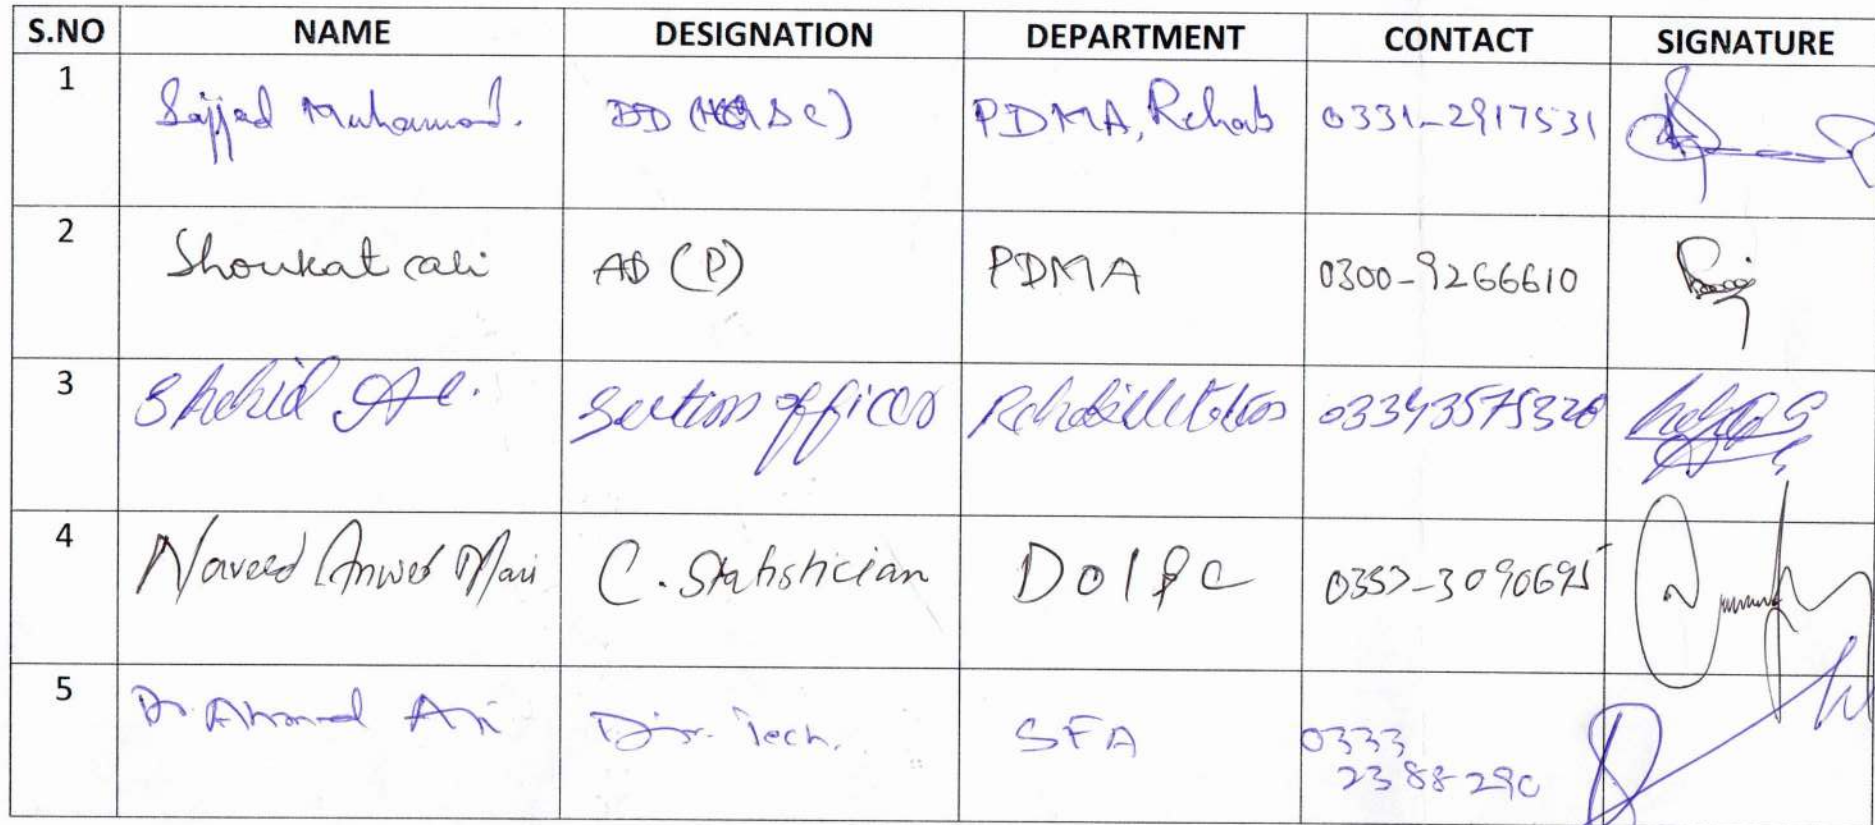 S.NO NAME DESIGNATION DEPARTMENT CONTACT SIGNATURE
1 Sajjad Muhammad. DD PDMA, Rehab 0331-2917531
2 Shoukat ali AD (P) PDMA 0300-9266610
3 Shahid Section officer Rehabilitation
4 Naveed Anwer C. Statistician
5 Dr. Ahmed Ali Dir. Tech. SFA 0333
2388290